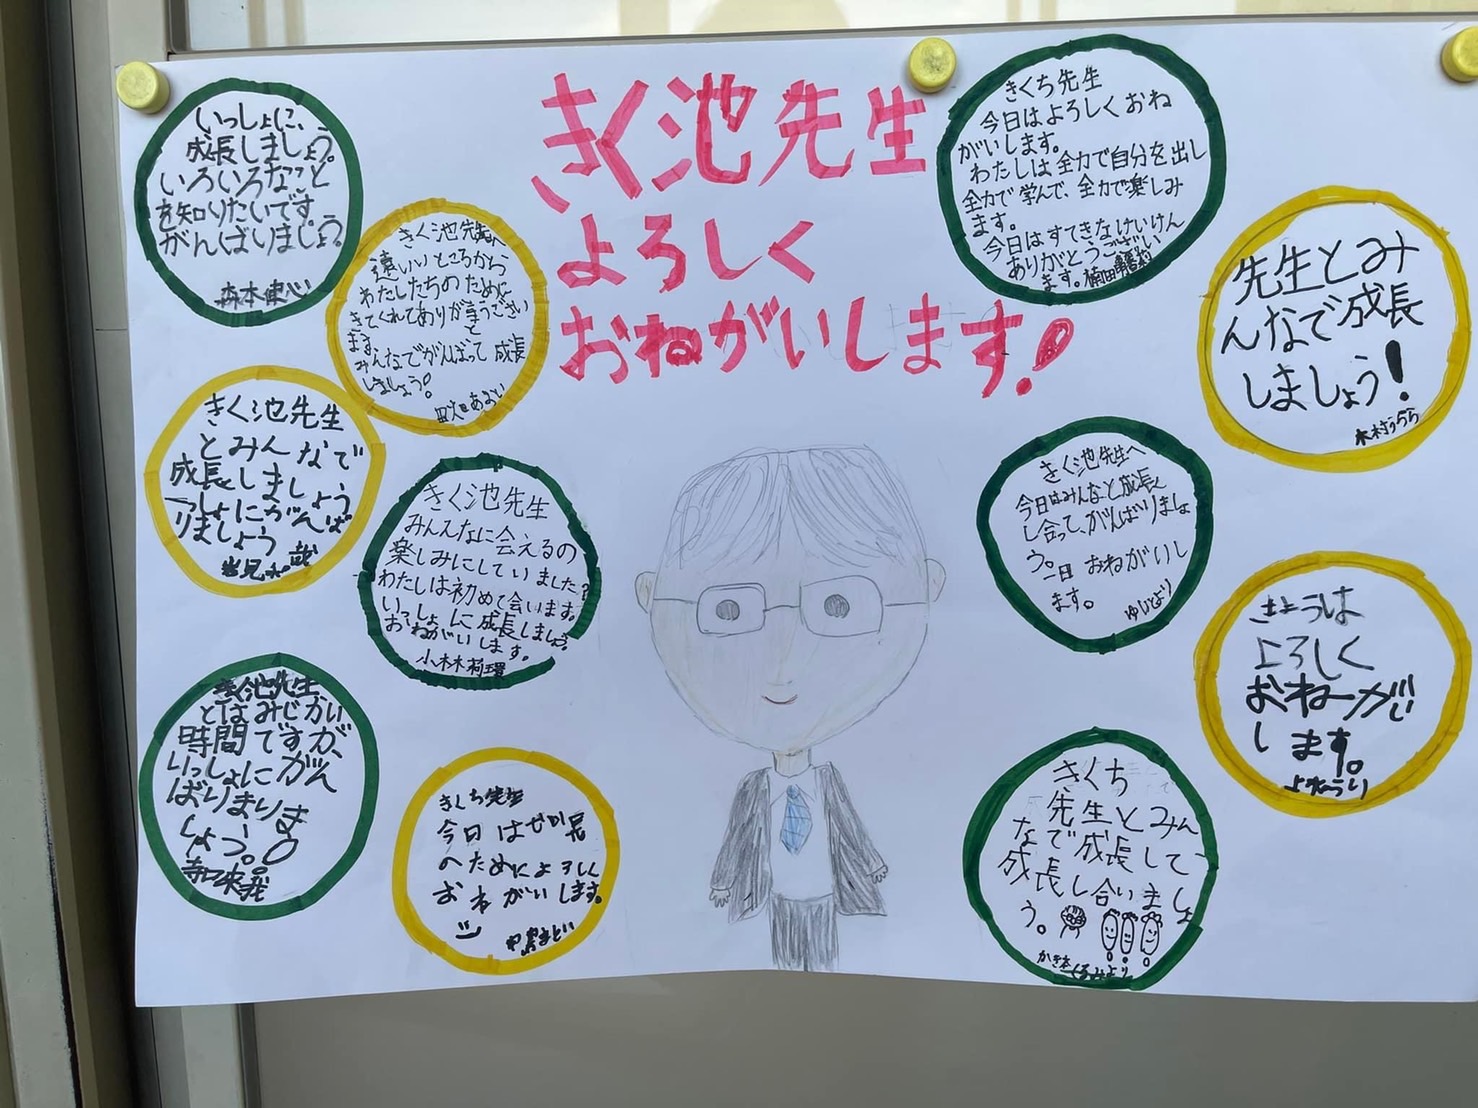 きく池先生
よろしく
おねがいします!
いっしょに、
成長しましょう。
いろいろなこと
を知りたいです。
がんばりましょう。
森本
きく池先生へ
遠いところから
わたしたちのために
きてくれてありが
ます。
みんなでがんばって成長
しましょう。
あおい
きく池先生
とみんなで
成長しましょう
いっしょにがんば
りましょう
きく池先生
みんんなに会えるの
楽しみにしていました。
わたしは初めて会います。
いっしょに成長しましょう。
おねがいします。
小林莉
きく池先生
とはみじかい
時間ですが、
いっしょにがん
ばりまりま
しょう。
きくち先生
今日は
のためによろしく
おねがいします。
きくち先生
今日はよろしくおね
がいします。
わたしは全力で自分を出し
全力で学んで、全力で楽しみ
ます。
今日はすてきなけいけん
ありがとうござい
ます。
先生とみ
んなで成長
しましょう!
木村うらら
きく池先生へ
今日はみんなと成長
し合って、がんばりましょ
う。一日おねがいし
ます。
きょうは
よろしく
おねがい
します。
きくち
先生とみん
なで成長して、
成長し合いましょ
う。
くるみより